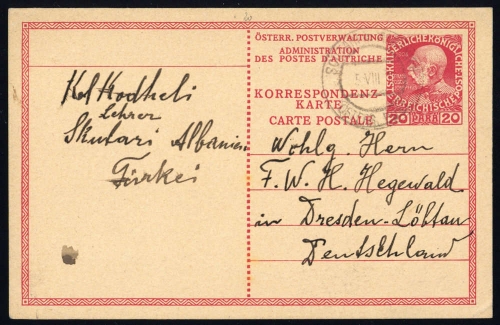 ÖSTERR. POSTVERWALTUNG
ADMINISTRATION
DES POSTES D'AUTRICHE
KORRESPONDENZ-
KARTE
CARTE POSTALE
20 PARA 20
5 VIII
Kol Kodheli
Lehrer
Skutari Albanien
Türkei
Wohlg. Herrn
F. W. H. Hegewald
in Dresden-Löbtau
Deutschland